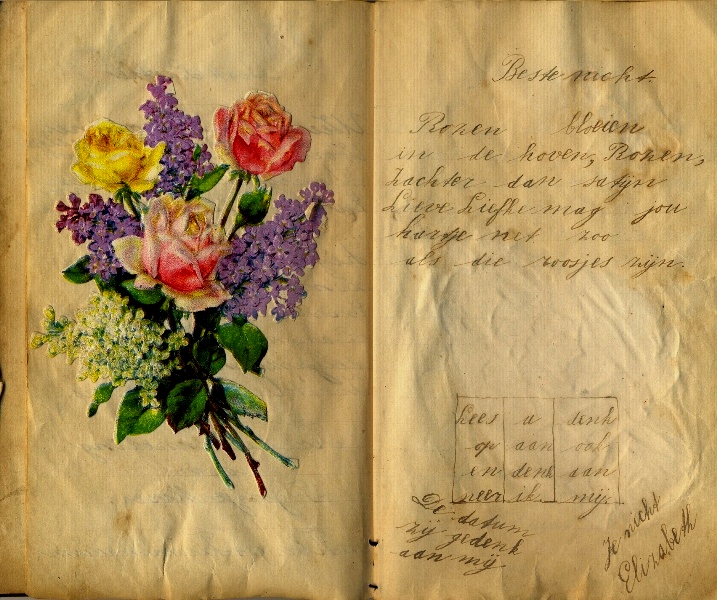 Beste nicht.
Rozen bloeien
in de hoven, Rozen,
Zachter dan satijn
Lieve Liefke mag jou
hartje net zoo
als die roosjes zijn.
Lees u denk
op aan ook
en denk aan
neer ik mij
De datum
zij gedenk
aan mij
Je nicht
Elizabeth